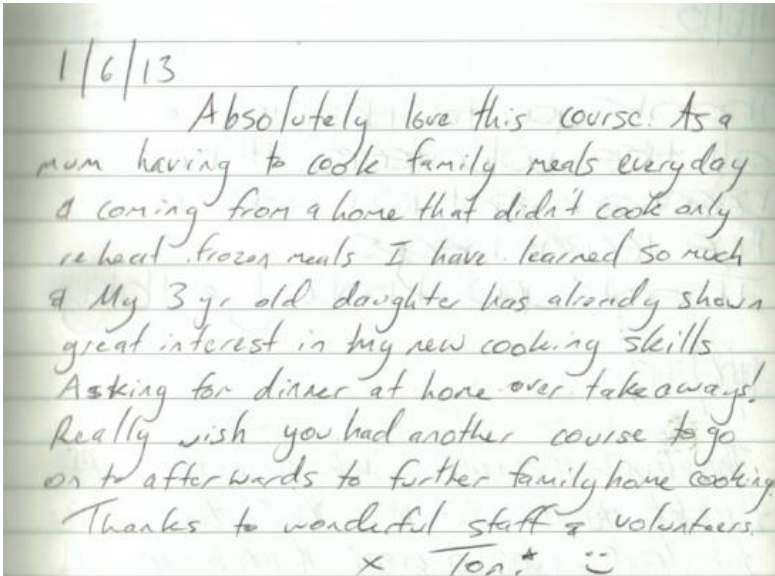 1/6/13
Absolutely love this course. As a
mum having to cook family meals everyday
& coming from a home that didn't cook only
reheat frozen meals I have learned so much
& My 3 yr old daughter has already shown
great interest in my new cooking skills
Asking for dinner at home over takeaways!
Really wish you had another course to go
on to afterwards to further family home cooking.
Thanks to wonderful staff & volunteers.
x Toni :)